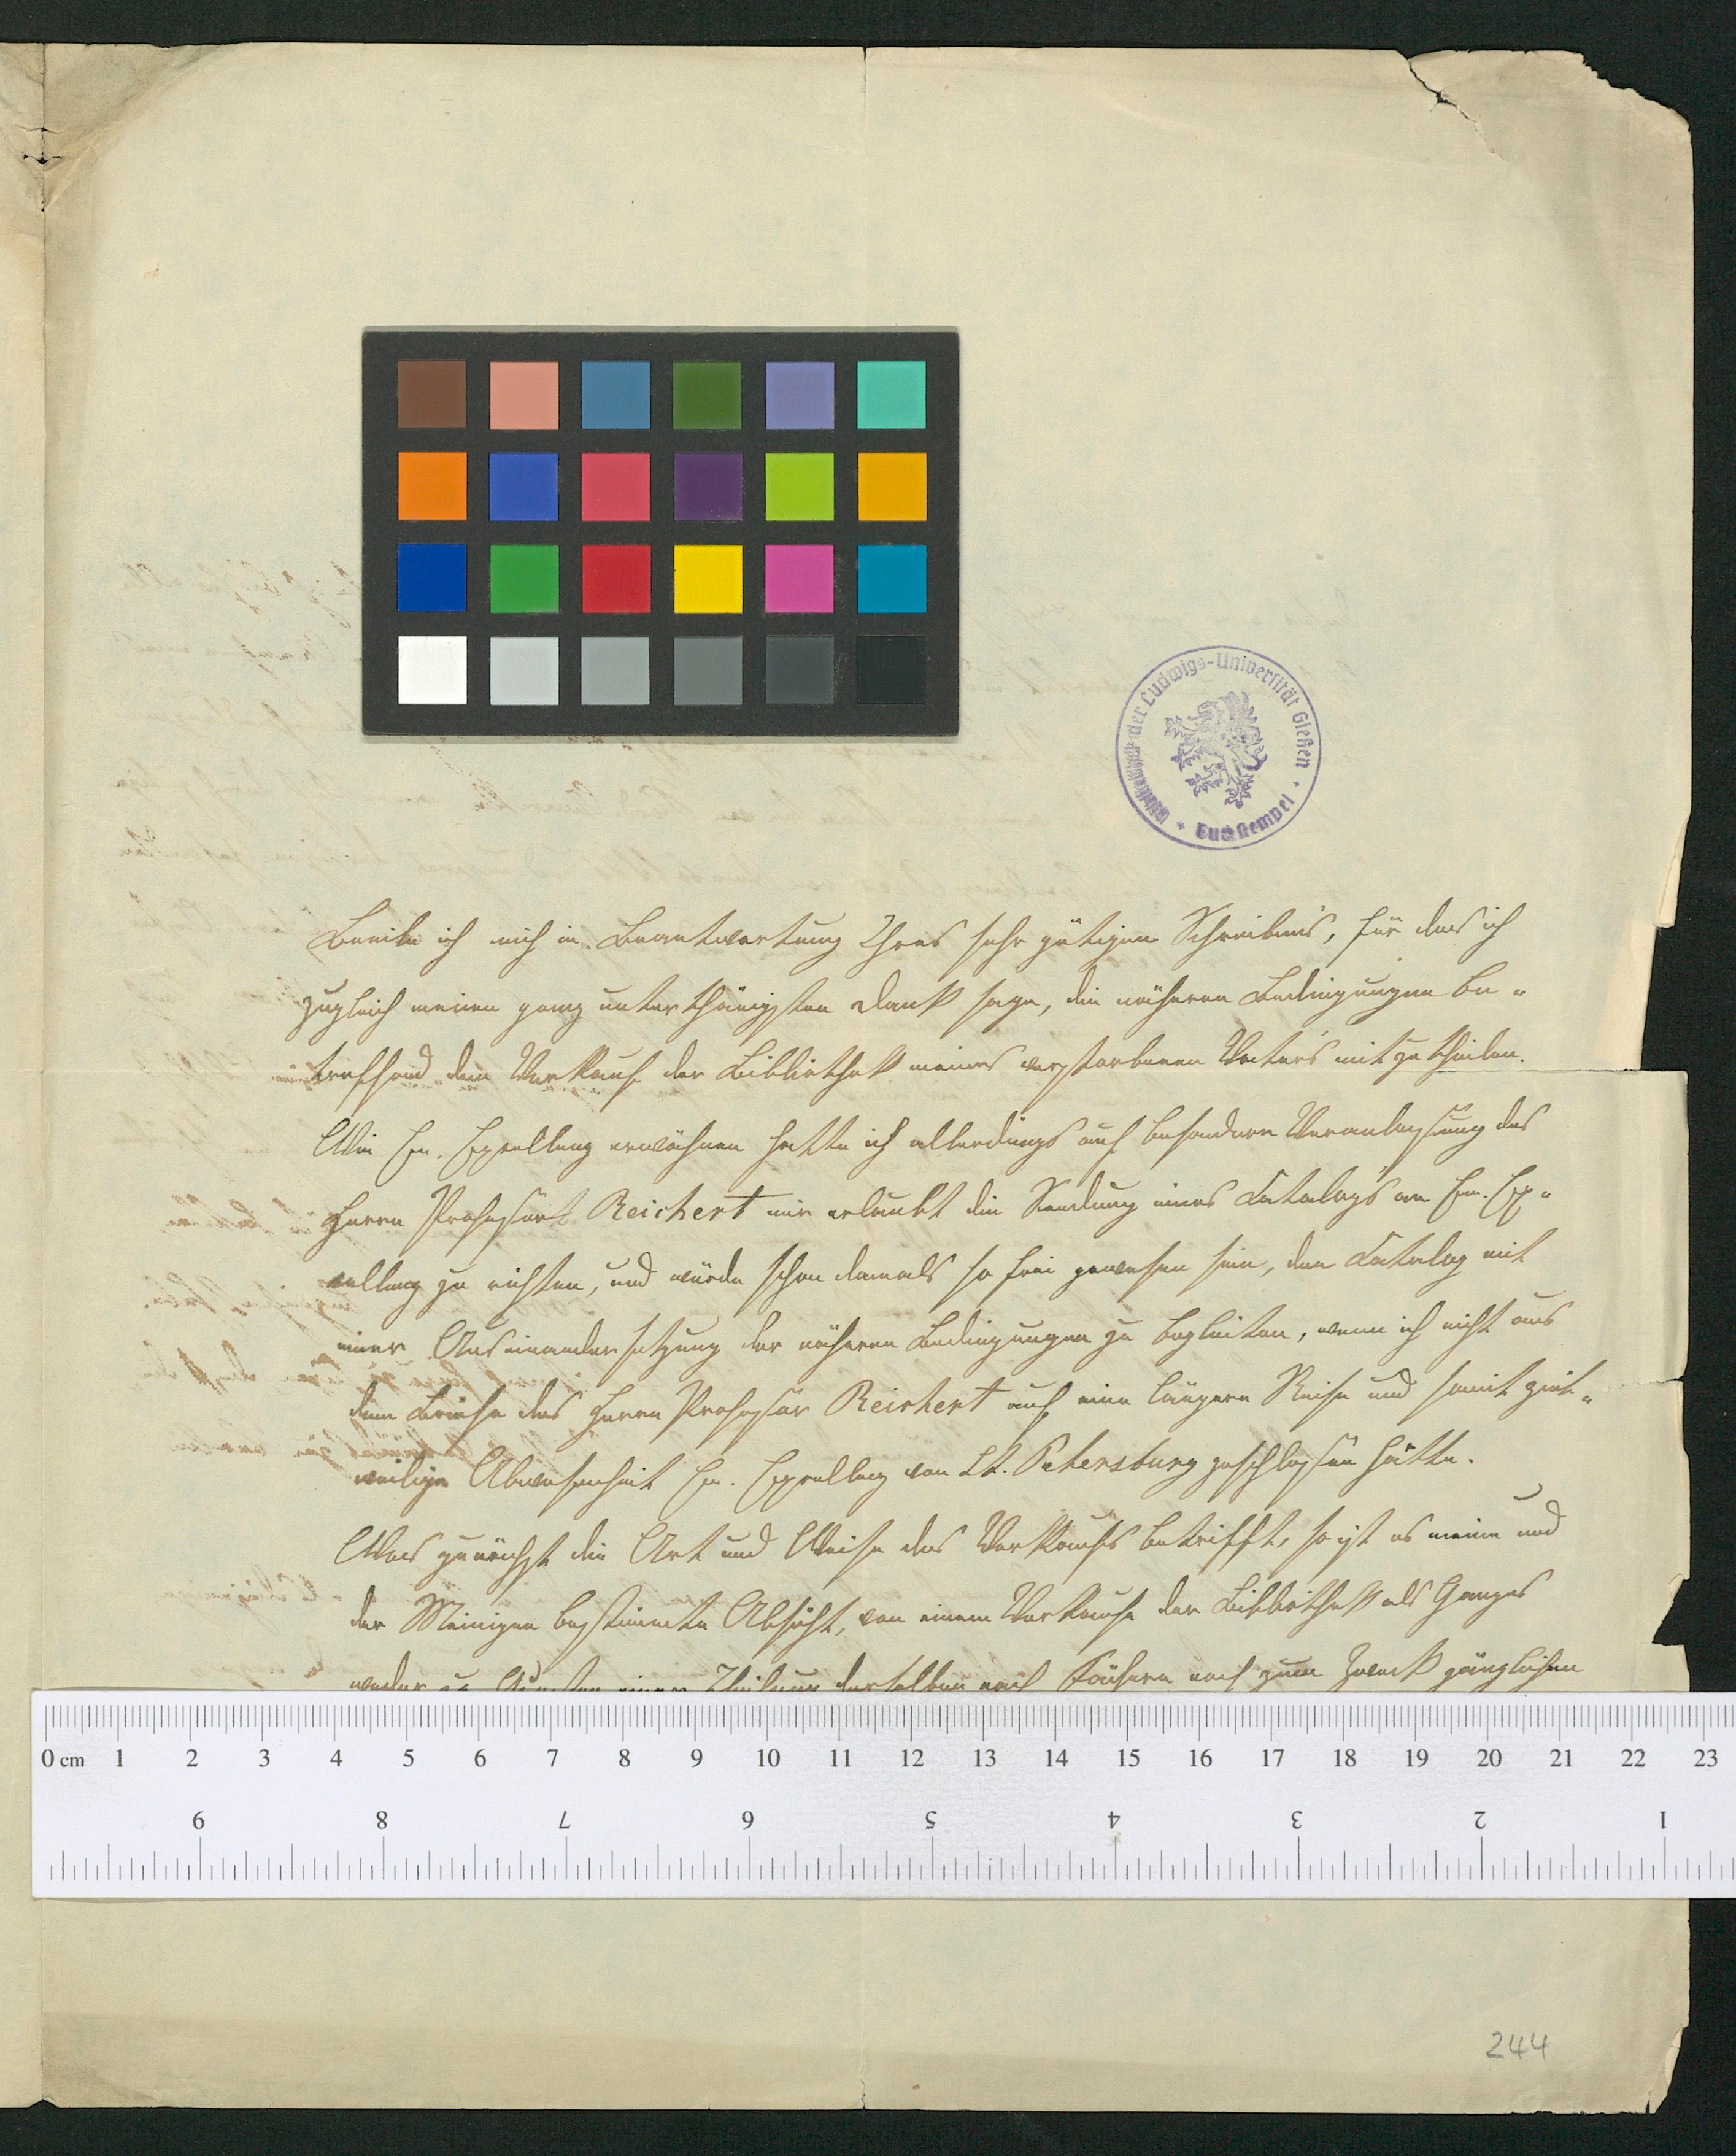 Universitätsbibliothek der Ludwigs-Universität Gießen · Buchstempel
Beeile ich mich in Beantwortung Ihres sehr gütigen Schreibens, für das ich
zugleich meinen ganz unterthänigsten Dank sage, die näheren Bedingungen be-
treffend den Verkauf der Bibliothek meines verstorbenen Vaters mitzutheilen.
Wie Ew. Excellenz erwähnen hatte ich allerdings auf besondere Veranlassung des
Herrn Professors Reichert mir erlaubt die Sendung eines Catalogs an Ew. Ex-
cellenz zu richten, und würde schon damals so frei gewesen sein, den Catalog mit
einer Auseinandersetzung der näheren Bedingungen zu begleiten, wenn ich nicht aus
dem Briefe des Herrn Professor Reichert auf eine längere Reise und somit zeit-
weilige Abwesenheit Ew. Excellenz von St. Petersburg geschlossen hätte.
Was zunächst die Art und Weise des Verkaufs betrifft, so ist es meine und
der Meinigen bestimmte Absicht, von einem Verkaufe der Bibliothek als Ganzes
weder zu Gunsten einer Theilung derselben nach Fächern noch zum Zweck gänzlichen
0 cm 1 2 3 4 5 6 7 8 9 10 11 12 13 14 15 16 17 18 19 20 21 22 23
9 8 7 6 5 4 3 2 1
244